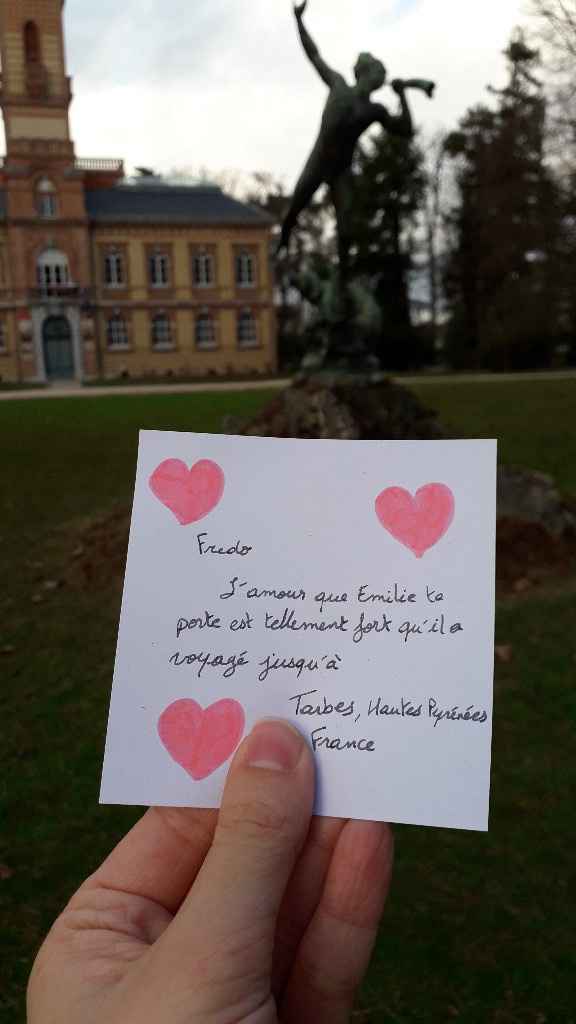 Fredo
L'amour que Emilie te
porte est tellement fort qu'il a
voyagé jusqu'à
Tarbes, Hautes Pyrénées
France